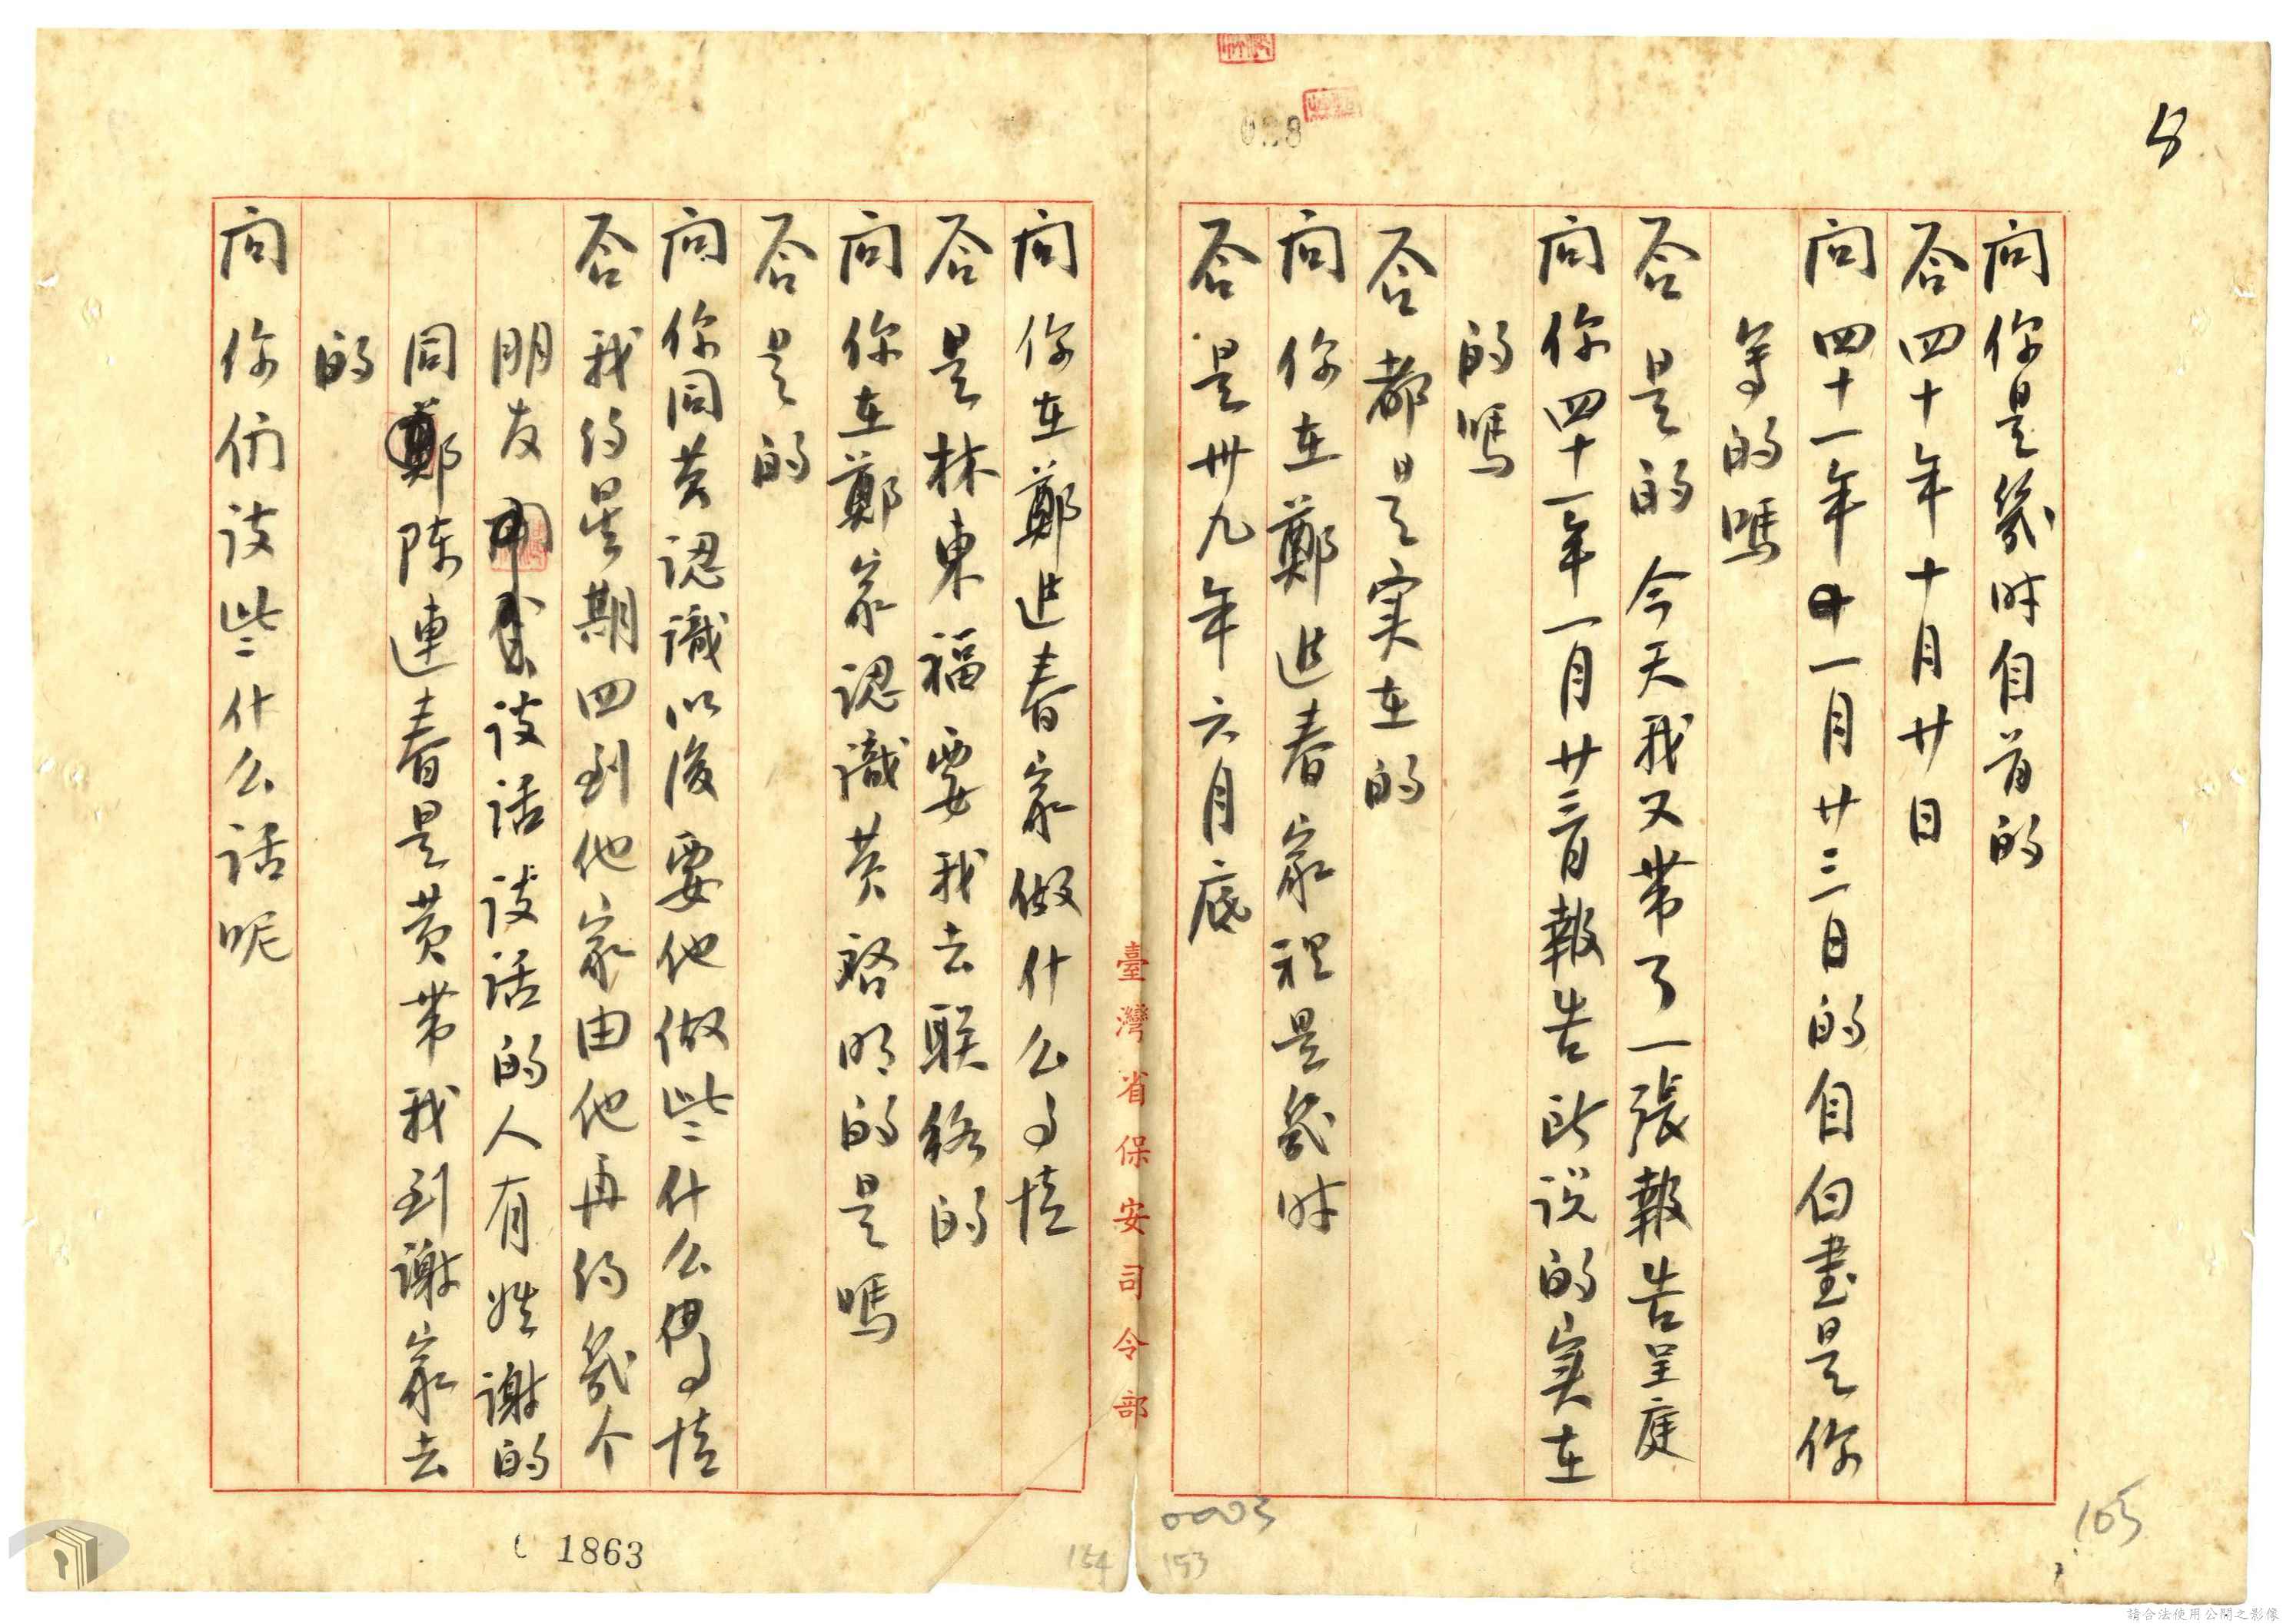 5
098
問 你是幾时自首的
答 四十年十月廿日
問 四十一年十一月廿三日的自白書是你
写的嗎
答 是的 今天我又带了一張報告呈庭
問 你四十一年一月廿三日報告所说的实在
的嗎
答 都是实在的
問 你在鄭进春家裡是幾时
答 是卅九年六月底
臺灣省保安司令部
問 你在鄭进春家做什么事情
答 是林東福要我去联络的
問 你在鄭家認識黄啓明的是嗎
答 是的
問 你同黄認識以後要他做些什么事情
答 我约星期四到他家由他再约幾个
朋友談話談話的人有姓謝的
同鄭陈連春是黄带我到謝家去
的
問 你们談些什么話呢
0003
105
153
154
1863
請合法使用公開之影像